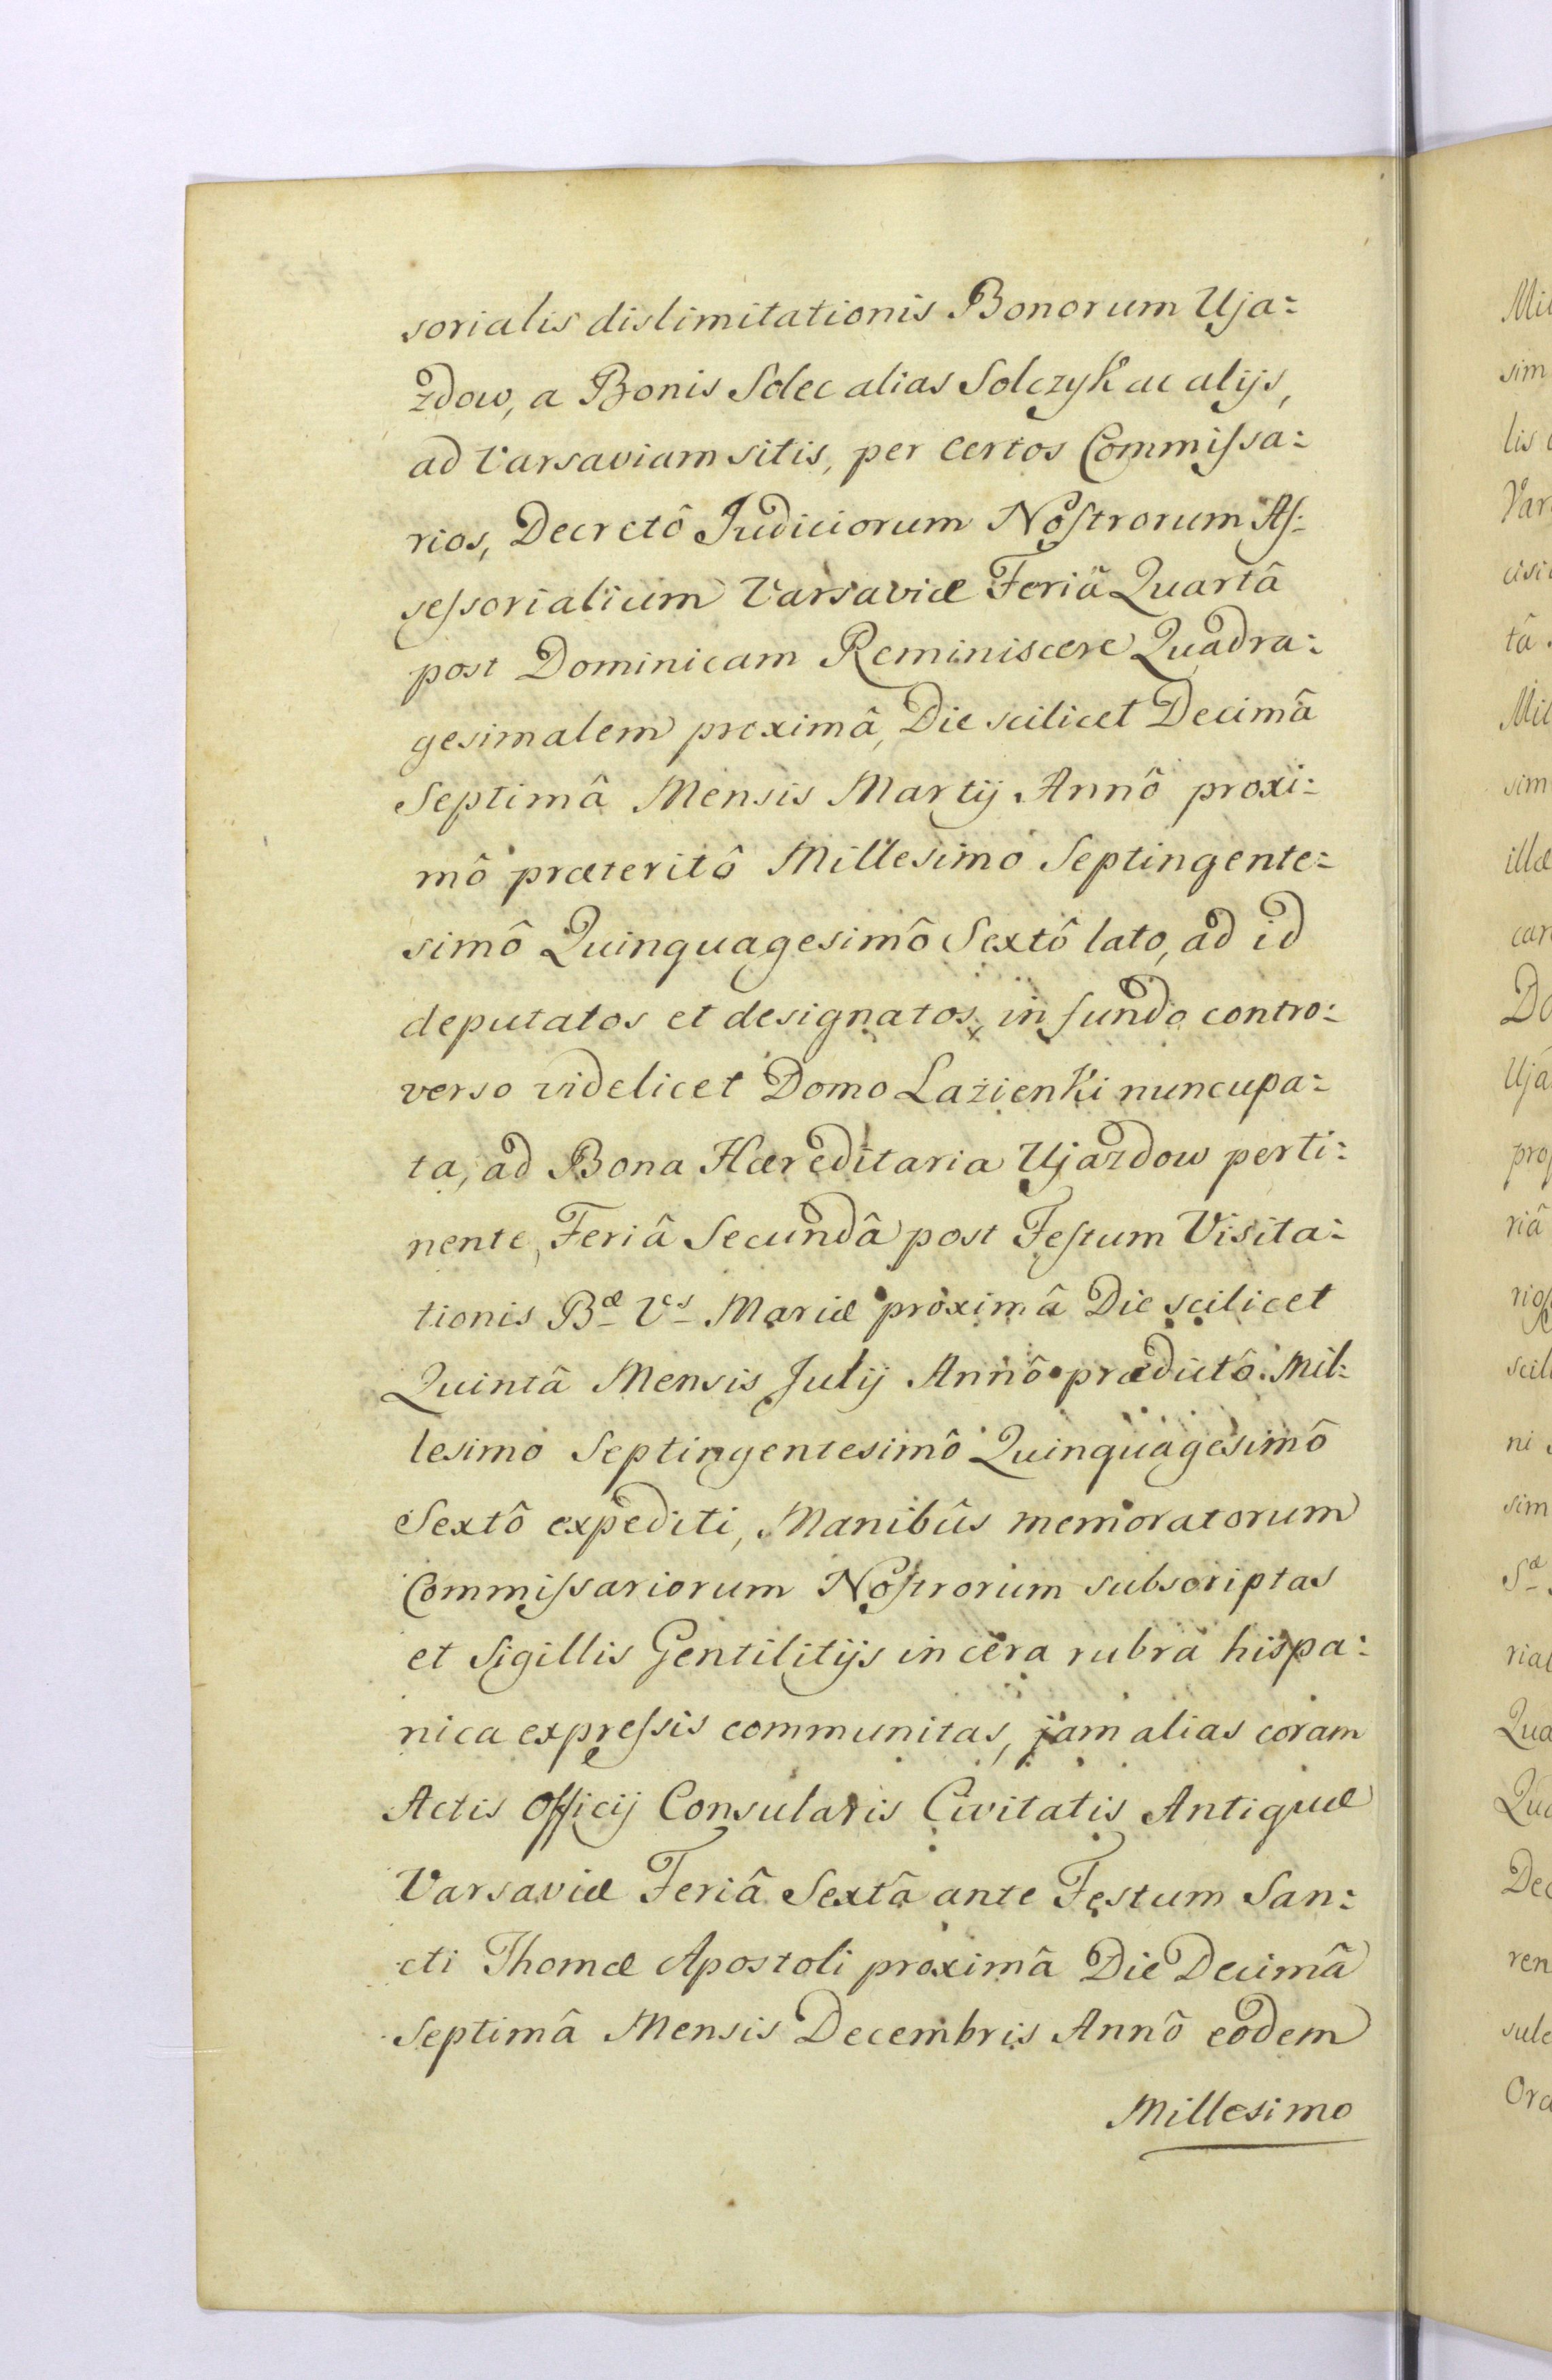 sorialis dislimitationis Bonorum Uja=
zdow, a Bonis Solec alias Solczyk ac alijs,
ad Varsaviam sitis, per certos Commiſsa=
rios, Decretô Judiciorum Noſtrorum Aſ=
seſsorialium Varsaviæ Feriâ Quartâ
post Dominicam Reminiscere Quadra=
gesimalem proximâ, Die scilicet Decimâ
Septimâ Mensis Martij Annô proxi=
mô præteritô Millesimo Septingente=
simô Quinquagesimô Sextô lato, ad id
deputatos et designatos, in fundo contro=
verso videlicet Domo Lazienki nuncupa=
ta, ad Bona Hæreditaria Ujazdow perti=
nente, Feriâ Secundâ post Feſtum Visita=
tionis Bæ Ves Mariæ proximâ Die scilicet
Quintâ Mensis Julij Annô prædictô Mil=
lesimo Septingentesimô Quinquagesimô
Sextô expediti, Manibûs memoratorum
Commiſsariorum Noſtrorum subscriptas
et Sigillis Gentilitijs in cera rubra hispa=
nica expreſsis communitas, jam alias coram
Actis Officij Consularis Civitatis Antiquæ
Varsaviæ Feriâ Sextâ ante Festum San=
cti Thomæ Apostoli proximâ Die Decimâ
Septimâ Mensis Decembris Annô eodem
Millesimo